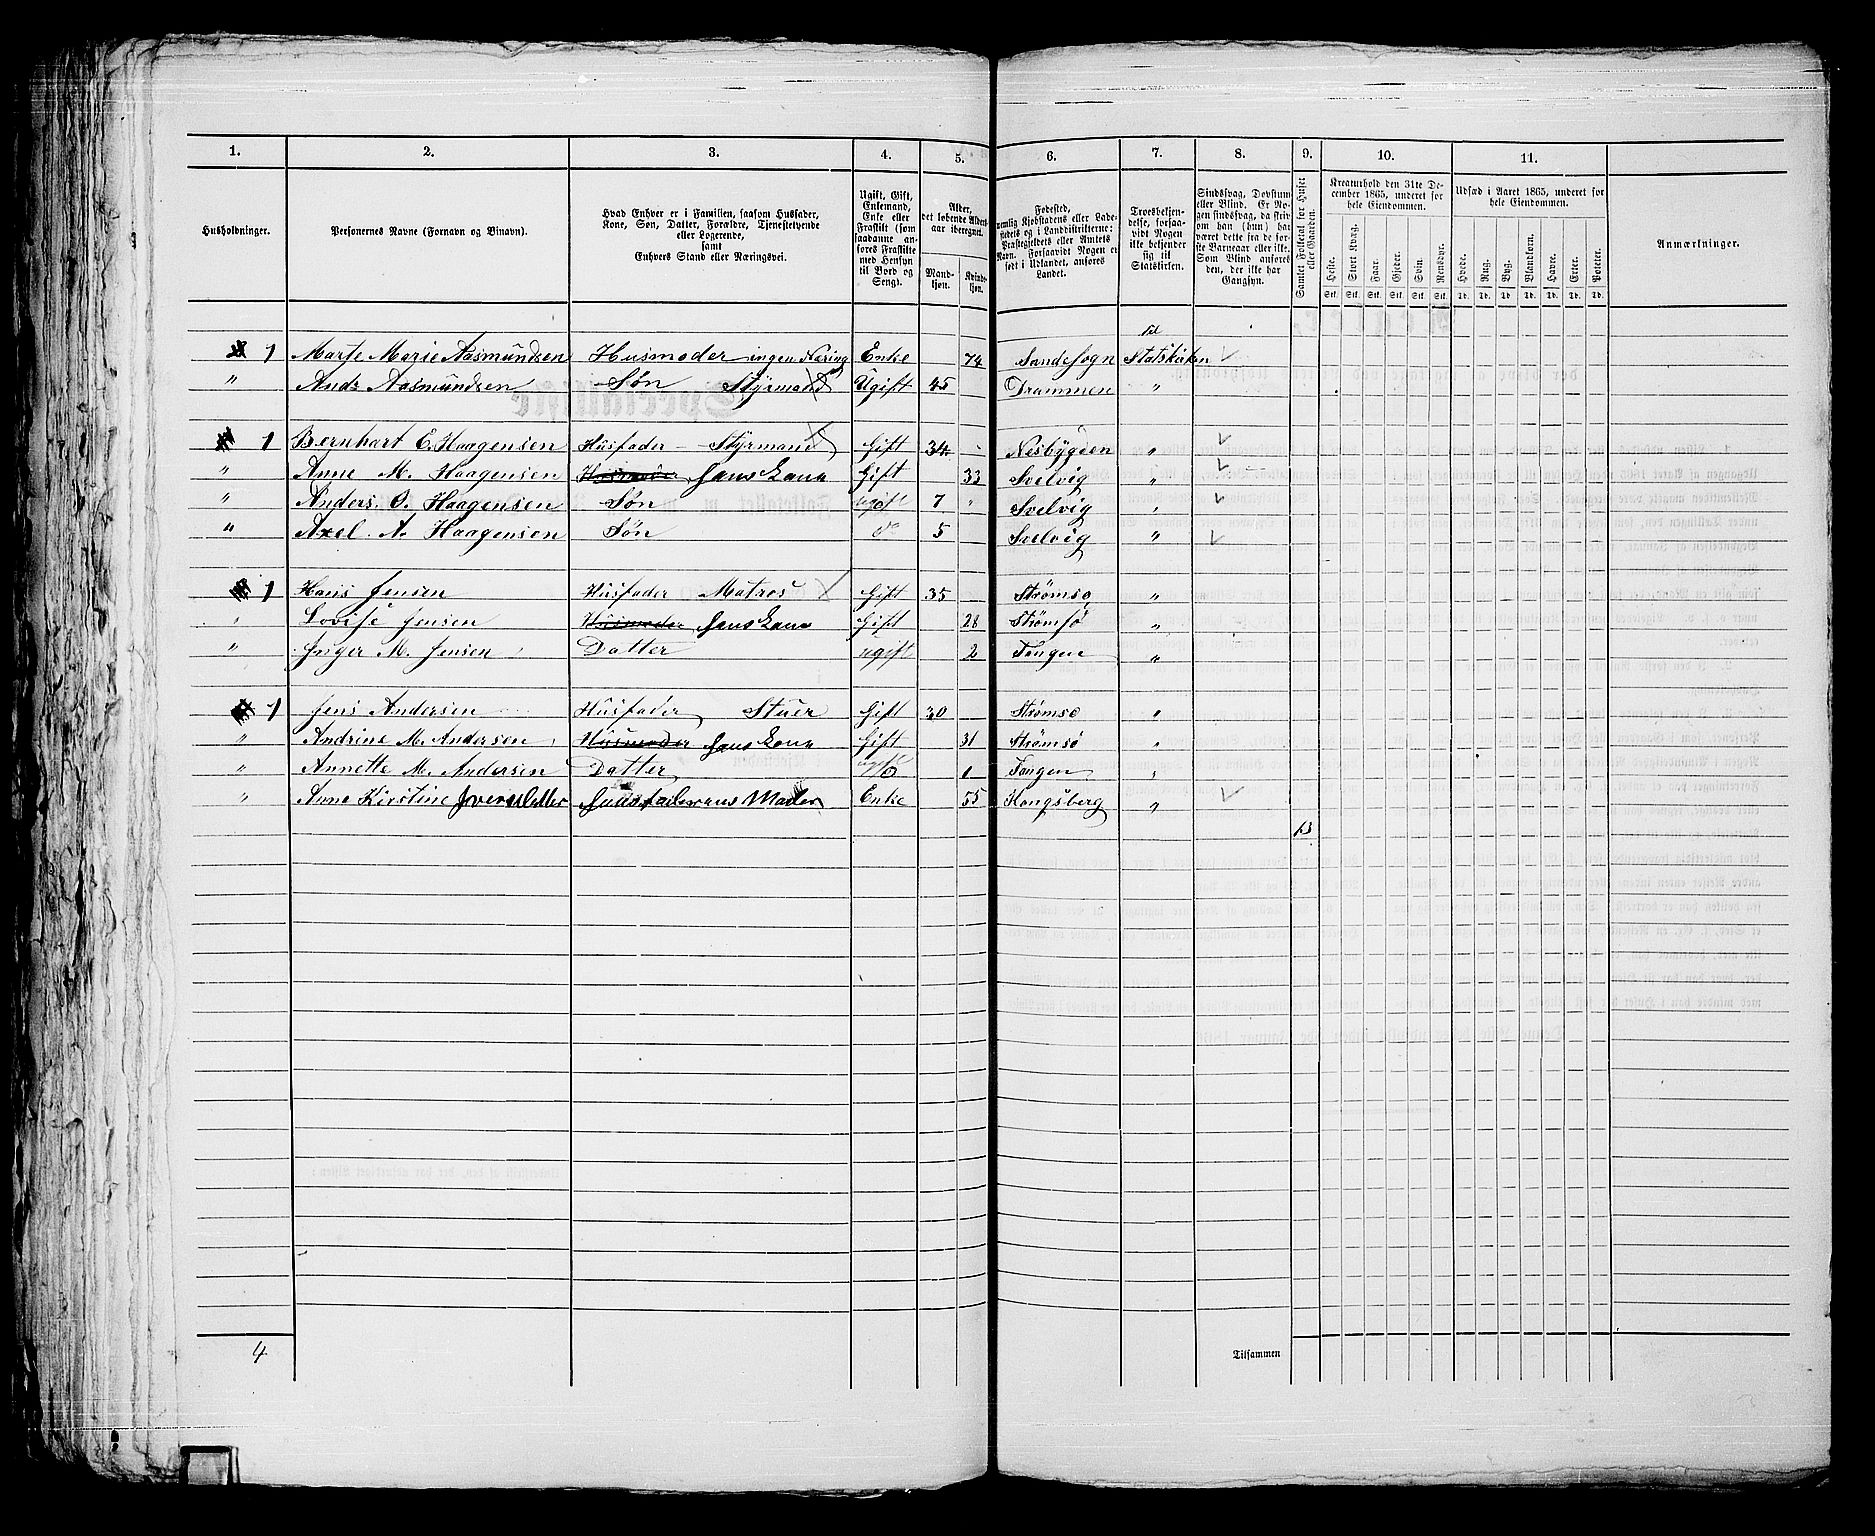 1. 2. 3. 4. 5. 6. 7. 8. 9. 10. 11.
Husholdninger.
Personernes Navne (Fornavn og Binavn).
Hvad Enhver er i Familien, saasom Husfader,
Kone, Søn, Datter, Forældre, Tjenestetyende
eller Logerende,
samt
Enhvers Stand eller Næringsvei.
Ugift, Gift,
Enkemand,
Enke eller
Fraskilt (som
saadanne an-
føres Fraskilte
med Hensyn
til Bord og
Seng).
Alder,
det løbende Alders-
aar iberegnet.
Mand-
kjøn.
Kvinde-
kjøn.
Fødested,
nemlig Kjøbstadens eller Lade-
stedets og i Landdistrikterne:
Præstegjeldets eller Amtets
Navn. Forsaavidt Nogen er
født i Udlandet, anføres
Landet.
Troesbekjen-
delse, forsaa-
vidt Nogen
ikke bekjender
sig til
Statskirken.
Sindssvag, Døvstum
eller Blind. Er No-
gen sindssvag, da skriv
om han (hun) har
været dette fra de før-
ste Barneaar eller ikke.
Som Blind anføres
den, der ikke har
Gangsyn.
Samlet Folketal for Huset
eller Gaarden.
Kreaturhold den 31te De-
cember 1865, underet for
hele Eiendommen.
Heste. Stort Kvæg. Faar. Gjeder. Svin. Rensdyr.
Stk. Stk. Stk. Stk. Stk. Stk.
Udsæd i Aaret 1865, underet for
hele Eiendommen.
Hvede. Rug. Byg. Blandkorn. Havre. Erter. Poteter.
Td. Td. Td. Td. Td. Td. Td.
Anmærkninger.
1 Marte Marie Aasmundsen Husmoder ingen Næring Enke 74 Sandesogn til Statskirken
" Andr Aasmundsen Søn Styrmand Ugift 45 Drammen "
1 Bernhart E. Haagensen Husfader – Styrmand Gift 34 Nesbygden "
" Anne M. Haagensen Husmoder hans Kone Gift 33 Svelvig "
" Anders. O. Haagensen Søn ugift 7 " Svelvig "
" Axel. A. Haagensen Søn do 5 Svelvig "
1 Hans Jensen Husfader Matros Gift 35 Strømsø "
" Lovise Jensen Husmoder hans Kone Gift 28 Strømsø "
" Inger M. Jensen Datter ugift 2 Tangen "
1 Jens Andersen Husfader Stuer Gift 30 Strømsø "
" Andrine M. Andersen Husmoder hans Kone Gift 31 Strømsø "
" Annette M. Andersen Datter ugift 1 Tangen "
" Anne Kirstine Iversdatter Husfaderens Moder Enke 55 Kongsberg "
13
4
Tilsammen